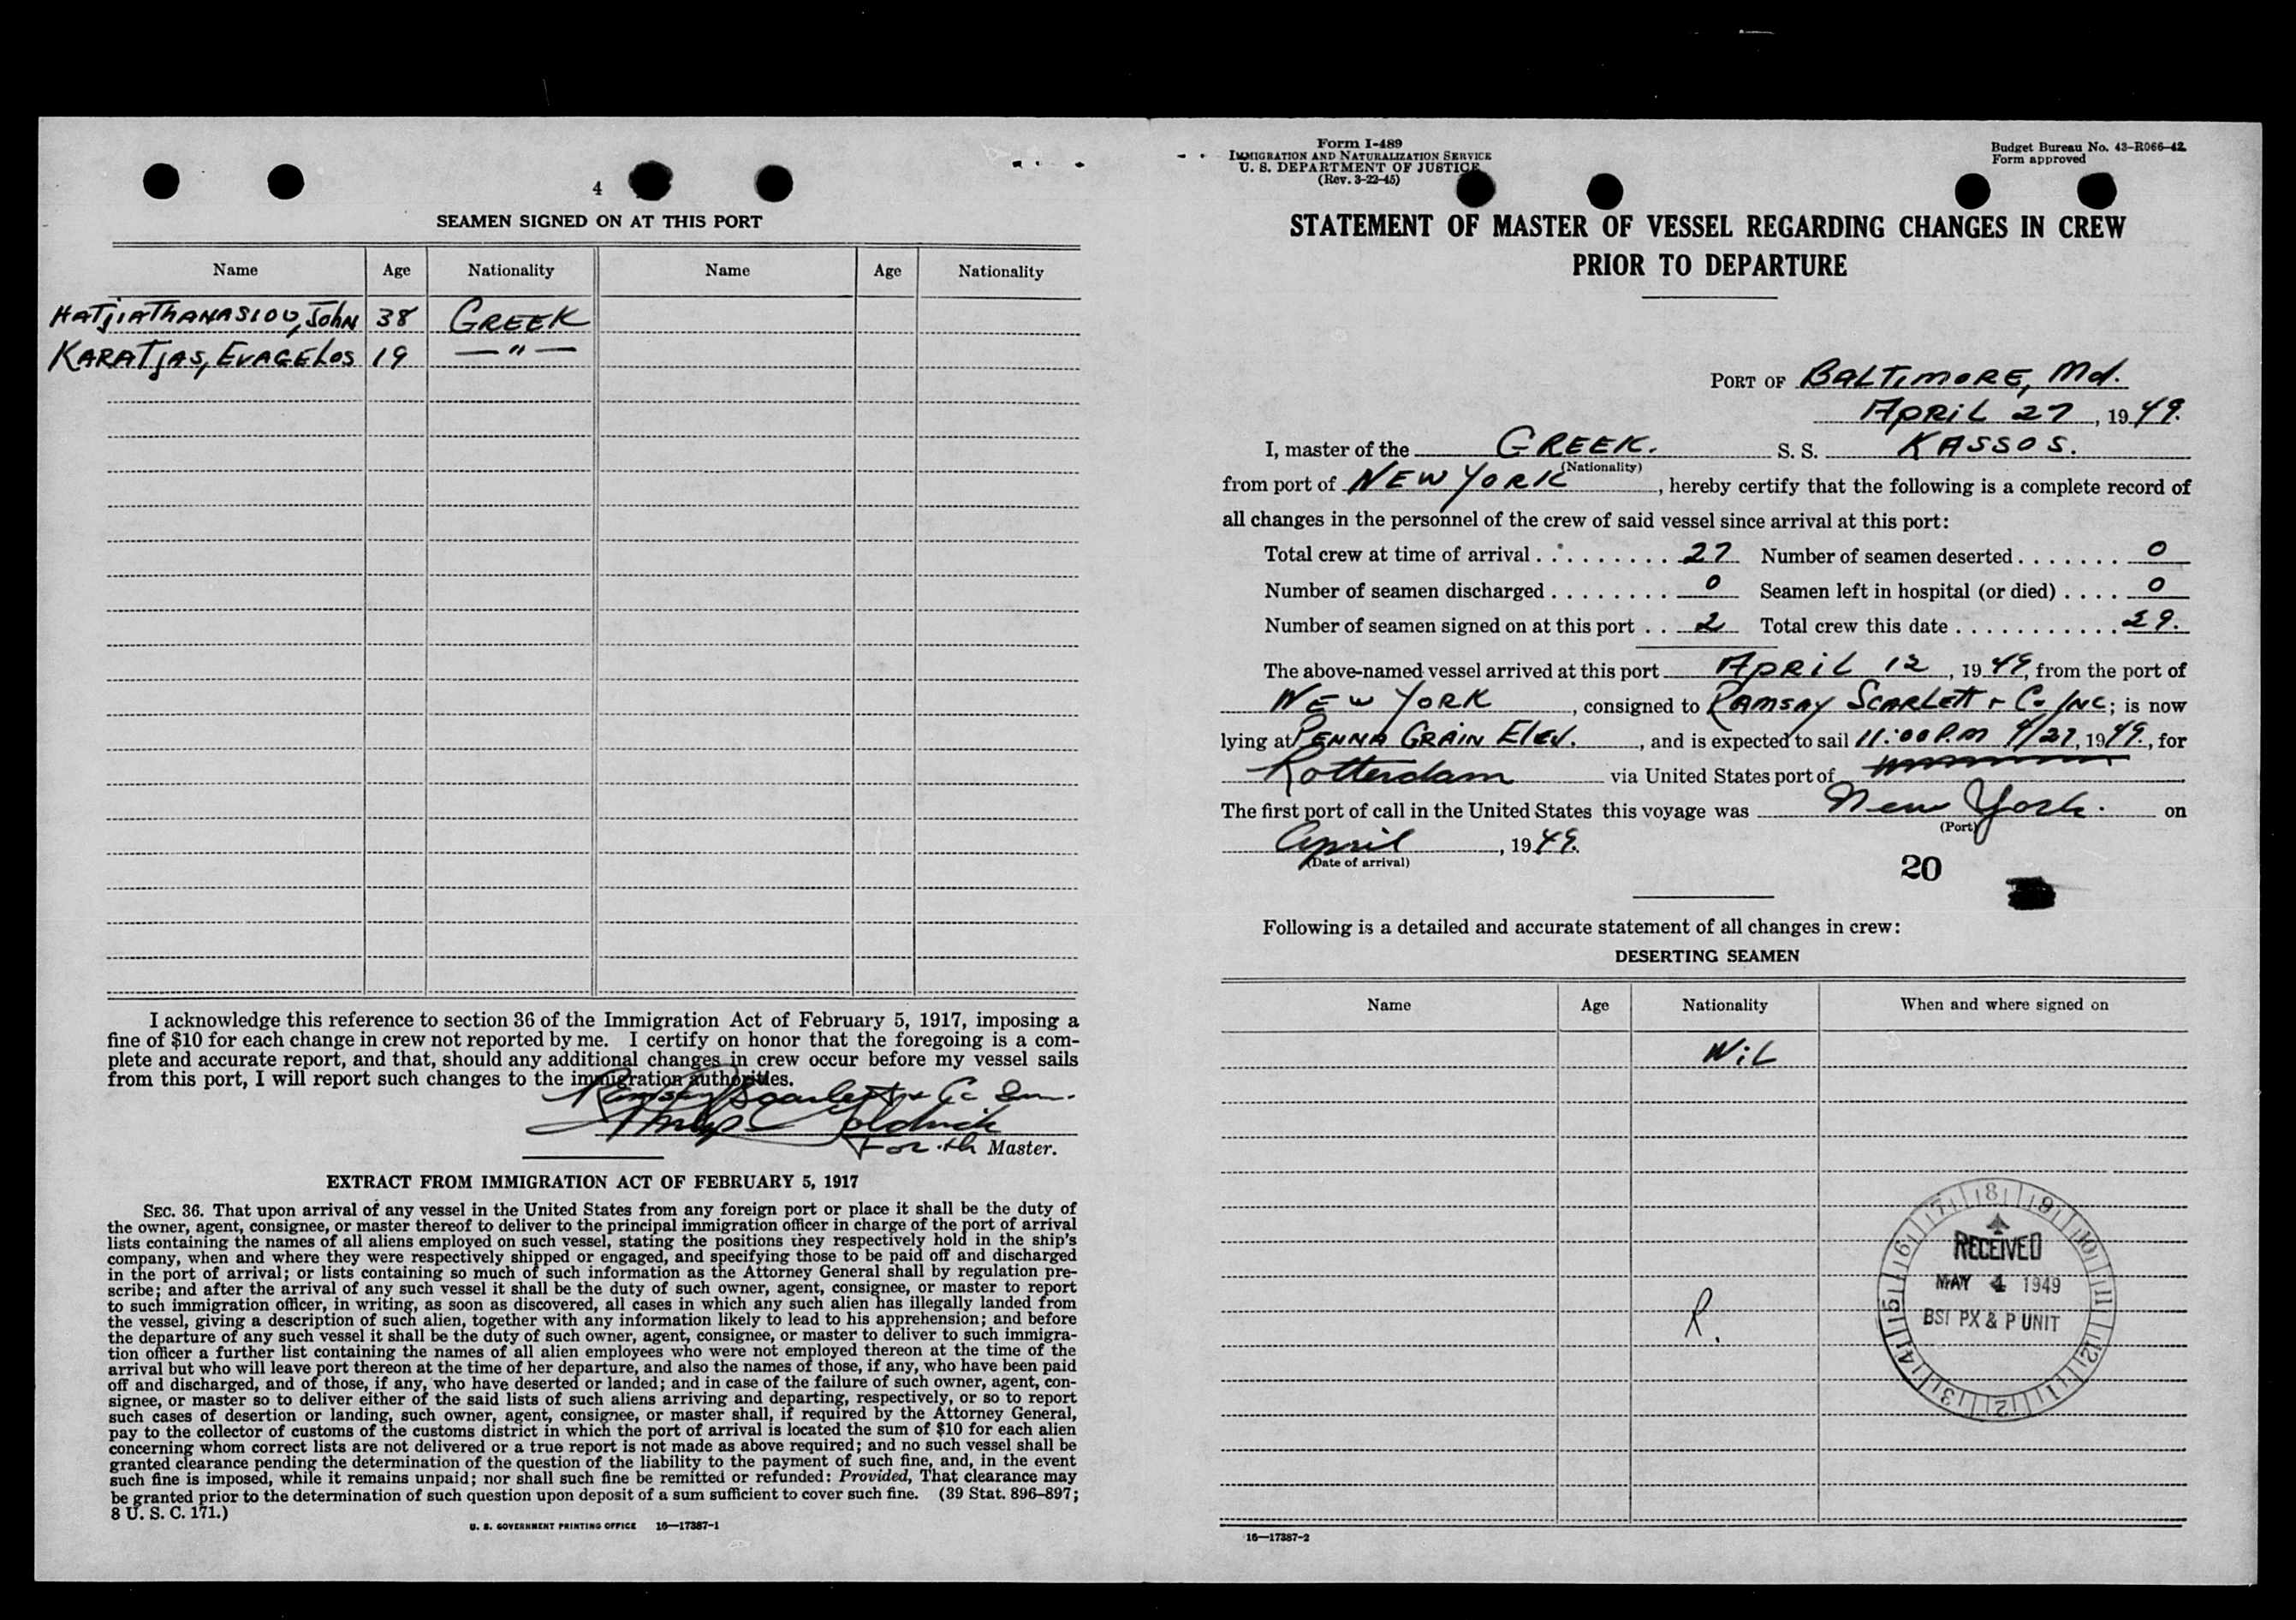 4
SEAMEN SIGNED ON AT THIS PORT
Name Age Nationality Name Age Nationality
HATJIATHANASIOU, JOHN 38 GREEK
KARATJAS, EVAGELOS 19 — " —
I acknowledge this reference to section 36 of the Immigration Act of February 5, 1917, imposing a
fine of $10 for each change in crew not reported by me. I certify on honor that the foregoing is a com-
plete and accurate report, and that, should any additional changes in crew occur before my vessel sails
from this port, I will report such changes to the immigration authorities.
Ramsay Scarlett & Co Inc.
For th Master.
EXTRACT FROM IMMIGRATION ACT OF FEBRUARY 5, 1917
SEC. 36. That upon arrival of any vessel in the United States from any foreign port or place it shall be the duty of
the owner, agent, consignee, or master thereof to deliver to the principal immigration officer in charge of the port of arrival
lists containing the names of all aliens employed on such vessel, stating the positions they respectively hold in the ship's
company, when and where they were respectively shipped or engaged, and specifying those to be paid off and discharged
in the port of arrival; or lists containing so much of such information as the Attorney General shall by regulation pre-
scribe; and after the arrival of any such vessel it shall be the duty of such owner, agent, consignee, or master to report
to such immigration officer, in writing, as soon as discovered, all cases in which any such alien has illegally landed from
the vessel, giving a description of such alien, together with any information likely to lead to his apprehension; and before
the departure of any such vessel it shall be the duty of such owner, agent, consignee, or master to deliver to such immigra-
tion officer a further list containing the names of all alien employees who were not employed thereon at the time of the
arrival but who will leave port thereon at the time of her departure, and also the names of those, if any, who have been paid
off and discharged, and of those, if any, who have deserted or landed; and in case of the failure of such owner, agent, con-
signee, or master so to deliver either of the said lists of such aliens arriving and departing, respectively, or so to report
such cases of desertion or landing, such owner, agent, consignee, or master shall, if required by the Attorney General,
pay to the collector of customs of the customs district in which the port of arrival is located the sum of $10 for each alien
concerning whom correct lists are not delivered or a true report is not made as above required; and no such vessel shall be
granted clearance pending the determination of the question of the liability to the payment of such fine, and, in the event
such fine is imposed, while it remains unpaid; nor shall such fine be remitted or refunded: Provided, That clearance may
be granted prior to the determination of such question upon deposit of a sum sufficient to cover such fine. (39 Stat. 896–897;
8 U. S. C. 171.)
U. S. GOVERNMENT PRINTING OFFICE 16—17387-1
Form I-489
IMMIGRATION AND NATURALIZATION SERVICE
U. S. DEPARTMENT OF JUSTICE
(Rev. 3-22-45)
Budget Bureau No. 43-R066-42
Form approved
STATEMENT OF MASTER OF VESSEL REGARDING CHANGES IN CREW
PRIOR TO DEPARTURE
PORT OF BALTIMORE, Md.
APRIL 27, 1949.
I, master of the GREEK. S. S. KASSOS.
(Nationality)
from port of NEW YORK, hereby certify that the following is a complete record of
all changes in the personnel of the crew of said vessel since arrival at this port:
Total crew at time of arrival . . . . . . . . . . 27 Number of seamen deserted . . . . . . . 0
Number of seamen discharged . . . . . . . . 0 Seamen left in hospital (or died) . . . . 0
Number of seamen signed on at this port . . 2 Total crew this date . . . . . . . . . . . 29.
The above-named vessel arrived at this port APRIL 12, 1949, from the port of
NEW YORK, consigned to RAMSAY SCARLETT & Co INC; is now
lying at PENNA GRAIN Elev., and is expected to sail 11:00 P.M 4/27, 1949., for
Rotterdam via United States port of
The first port of call in the United States this voyage was New York. on
(Port)
April, 1949.
(Date of arrival)
20
Following is a detailed and accurate statement of all changes in crew:
DESERTING SEAMEN
Name Age Nationality When and where signed on
NiL
R.
RECEIVED
MAY 4 1949
BSI PX & P UNIT
16—17387-2